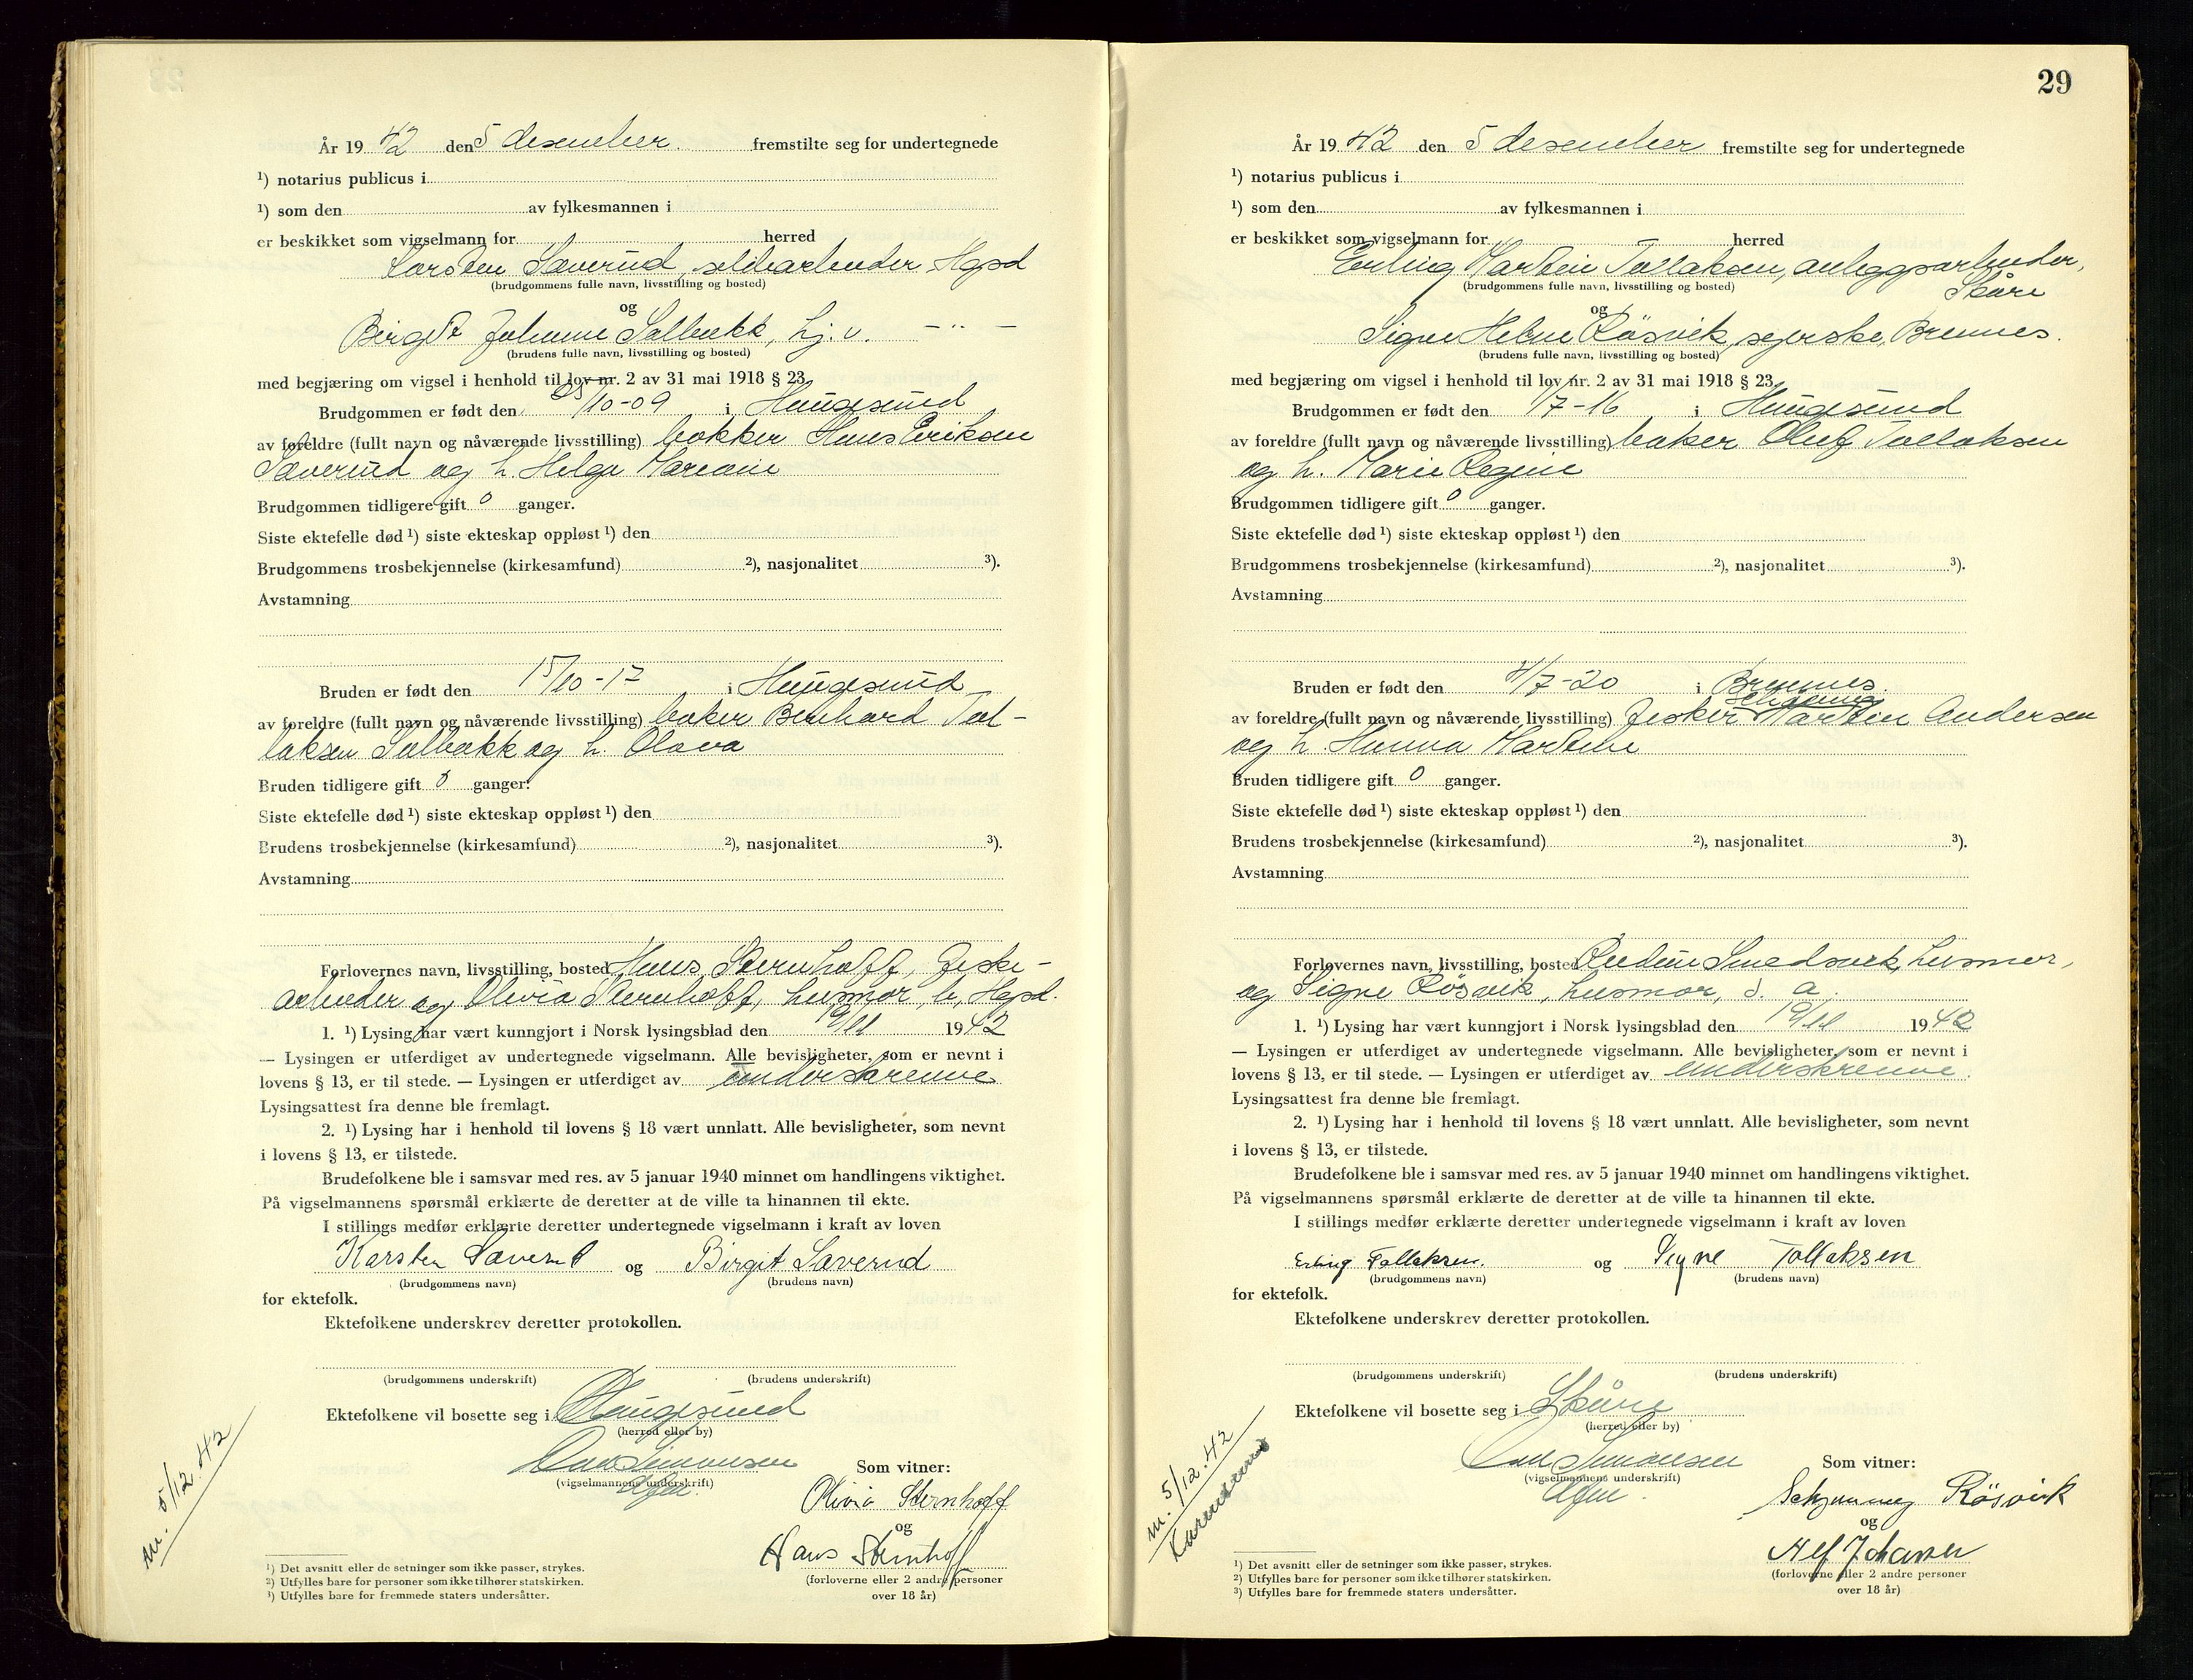 År 19 42 den 5 desember fremstilte seg for undertegnede
¹) notarius publicus i
¹) som den av fylkesmannen i
er beskikket som vigselmann for herred
Karsten Sæverud, sildearbeider Hgsd
(brudgommens fulle navn, livsstilling og bosted)
og
Birgit Johanne Solbakk, hj. v. — " —
(brudens fulle navn, livsstilling og bosted)
med begjæring om vigsel i henhold til lov nr. 2 av 31 mai 1918 § 23.
Brudgommen er født den /10-09 i Haugesund
av foreldre (fullt navn og nåværende livsstilling) bøkker Hans Eriksen
Sæverud og h. Helga
Brudgommen tidligere gift 0 ganger.
Siste ektefelle død ¹) siste ekteskap oppløst ¹) den
Brudgommens trosbekjennelse (kirkesamfund) ²), nasjonalitet ³).
Avstamning
Bruden er født den 15/10-17 i Haugesund
av foreldre (fullt navn og nåværende livsstilling) baker Bernhard Tol-
laksen Solbakk og h. Olava
Bruden tidligere gift 0 ganger.
Siste ektefelle død ¹) siste ekteskap oppløst ¹) den
Brudens trosbekjennelse (kirkesamfund) ²), nasjonalitet ³).
Avstamning
Forlovernes navn, livsstilling, bosted Hans Sternhoff, fiske-
arbeider og Olivia Sternhoff, husmor, b. Hgsd.
1. ¹) Lysing har vært kunngjort i Norsk lysingsblad den 19/11 19 42
— Lysingen er utferdiget av undertegnede vigselmann. Alle bevisligheter, som er nevnt i
lovens § 13, er til stede. — Lysingen er utferdiget av underskrevne
Lysingsattest fra denne ble fremlagt.
2. ¹) Lysing har i henhold til lovens § 18 vært unnlatt. Alle bevisligheter, som nevnt
i lovens § 13, er tilstede.
Brudefolkene ble i samsvar med res. av 5 januar 1940 minnet om handlingens viktighet.
På vigselmannens spørsmål erklærte de deretter at de ville ta hinannen til ekte.
I stillings medfør erklærte deretter undertegnede vigselmann i kraft av loven
Karsten Sæverud og Birgit Sæverud
(brudgommens navn) (brudens navn)
for ektefolk.
Ektefolkene underskrev deretter protokollen.
(brudgommens underskrift) (brudens underskrift)
Ektefolkene vil bosette seg i Haugesund
(herred eller by)
Simonsen
(vigselmannens underskrift)
Som vitner:
Olivia Sternhoff
og
Hans Sternhoff
(forloverne eller 2 andre personer
over 18 år)
m. 5/12.42
¹) Det avsnitt eller de setninger som ikke passer, strykes.
²) Utfylles bare for personer som ikke tilhører statskirken.
³) Utfylles bare for fremmede staters undersåtter.
29
År 19 42 den 5 desember fremstilte seg for undertegnede
¹) notarius publicus i
¹) som den av fylkesmannen i
er beskikket som vigselmann for herred
Erling Martin Tollaksen, anleggsarbeider,
Skåre
(brudgommens fulle navn, livsstilling og bosted)
og
Signe Helene Røsvik, syerske, Bremnes.
(brudens fulle navn, livsstilling og bosted)
med begjæring om vigsel i henhold til lov nr. 2 av 31 mai 1918 § 23.
Brudgommen er født den 1/7-16 i Haugesund
av foreldre (fullt navn og nåværende livsstilling) baker Oluf Tollaksen
og h. Marie Regine
Brudgommen tidligere gift 0 ganger.
Siste ektefelle død ¹) siste ekteskap oppløst ¹) den
Brudgommens trosbekjennelse (kirkesamfund) ²), nasjonalitet ³).
Avstamning
Bruden er født den 4/7-20 i Bremnes.
av foreldre (fullt navn og nåværende livsstilling) fisker Martin Andersen
og h. Hanna Martine
Bruden tidligere gift 0 ganger.
Siste ektefelle død ¹) siste ekteskap oppløst ¹) den
Brudens trosbekjennelse (kirkesamfund) ²), nasjonalitet ³).
Avstamning
Forlovernes navn, livsstilling, bosted Smedsvik, husmor,
og Signe Røsvik, husmor, s. a.
1. ¹) Lysing har vært kunngjort i Norsk lysingsblad den 19/11 19 42
— Lysingen er utferdiget av undertegnede vigselmann. Alle bevisligheter, som er nevnt i
lovens § 13, er til stede. — Lysingen er utferdiget av underskrevne.
Lysingsattest fra denne ble fremlagt.
2. ¹) Lysing har i henhold til lovens § 18 vært unnlatt. Alle bevisligheter, som nevnt
i lovens § 13, er tilstede.
Brudefolkene ble i samsvar med res. av 5 januar 1940 minnet om handlingens viktighet.
På vigselmannens spørsmål erklærte de deretter at de ville ta hinannen til ekte.
I stillings medfør erklærte deretter undertegnede vigselmann i kraft av loven
Erling Tollaksen. og Signe Tollaksen
(brudgommens navn) (brudens navn)
for ektefolk.
Ektefolkene underskrev deretter protokollen.
(brudgommens underskrift) (brudens underskrift)
Ektefolkene vil bosette seg i Skåre
(herred eller by)
Simonsen
(vigselmannens underskrift)
Som vitner:
Røsvik
og
Alf Johansen
(forloverne eller 2 andre personer
over 18 år)
m. 5/12.42
¹) Det avsnitt eller de setninger som ikke passer, strykes.
²) Utfylles bare for personer som ikke tilhører statskirken.
³) Utfylles bare for fremmede staters undersåtter.